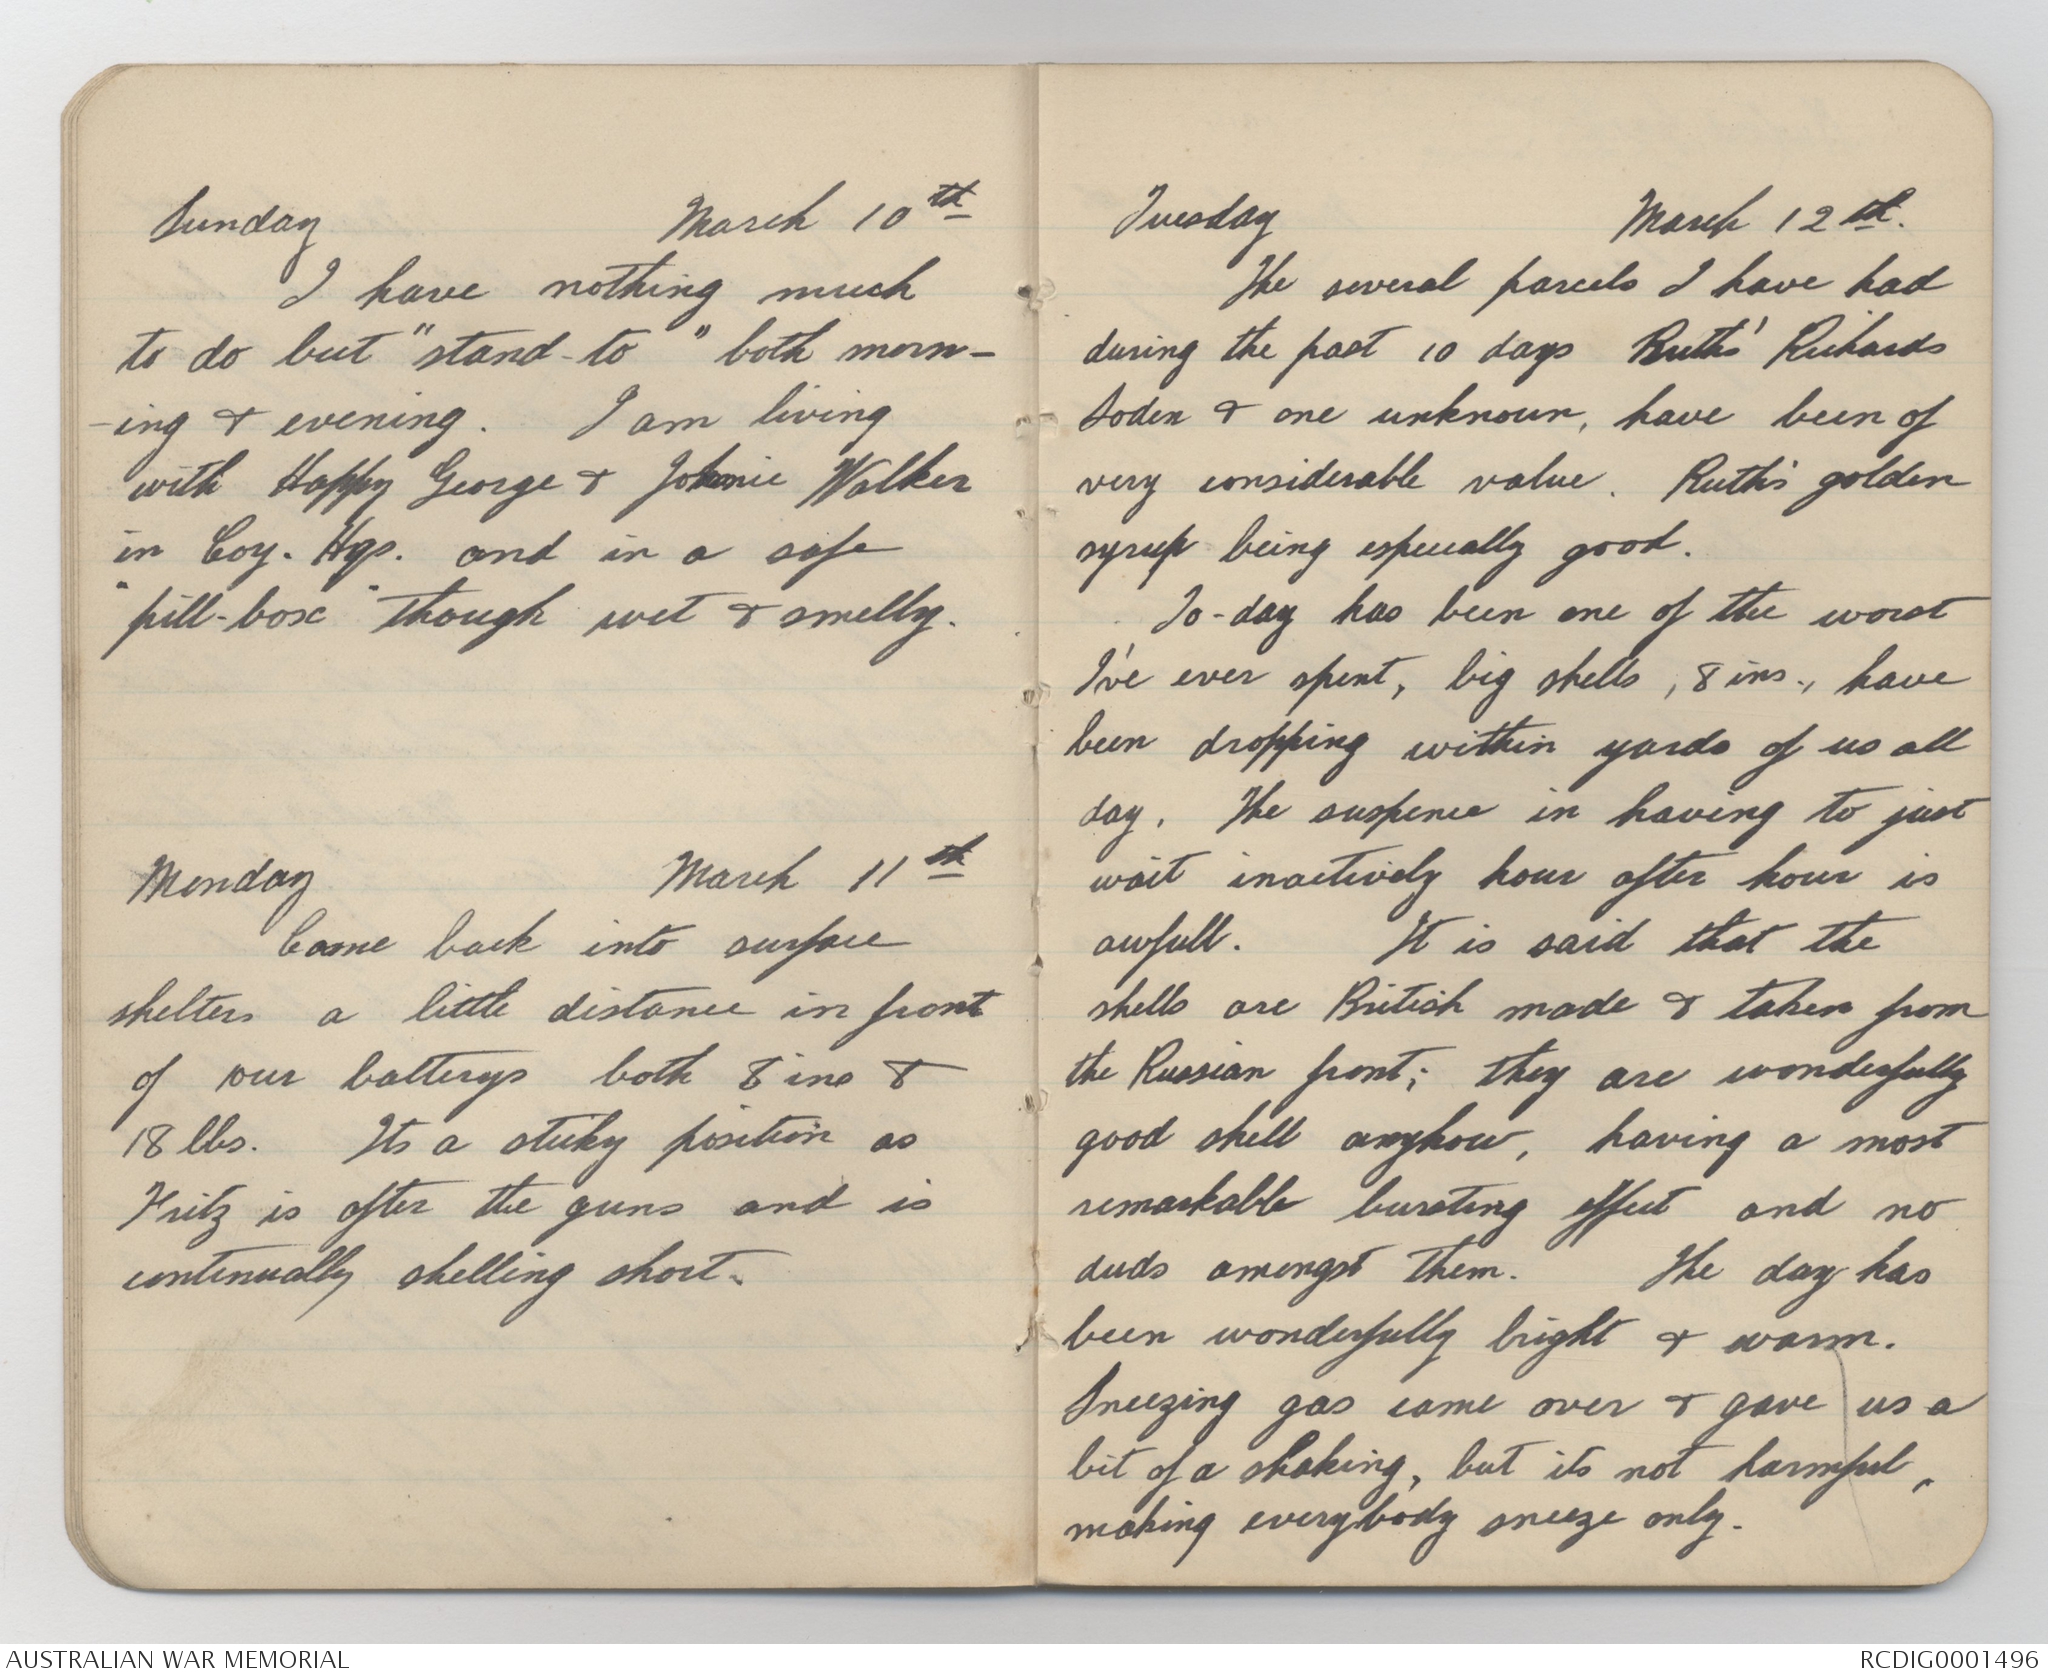 Sunday March 10th
I have nothing much
to do but "stand-to" both morn-
-ing & evening. I am living
with Happy George & Johnnie Walker
in Coy. Hqs. and in a safe
"pill-box" though wet & smelly.
Monday March 11th
Came back into surface
shelters a little distance in front
of our batterys both 8 ins &
18 lbs. Its a sticky position as
Fritz is after the guns and is
continually shelling short.
Tuesday March 12th.
The several parcels I have had
during the past 10 days Ruths' Richards
Soden & one unknown, have been of
very considerable value. Ruth's golden
syrup being especially good.
To-day has been one of the worst
I've ever spent, big shells, 8 ins., have
been dropping within yards of us all
day. The suspence in having to just
wait inactively hour after hour is
awfull. It is said that the
shells are British made & taken from
the Russian front; they are wonderfully
good shell anyhow, having a most
remarkable bursting effect and no
duds amongst them. The day has
been wonderfully bright & warm.
Sneezing gas came over & gave us a
bit of a shaking, but its not harmful,
making everybody sneeze only.
AUSTRALIAN WAR MEMORIAL
RCDIG0001496